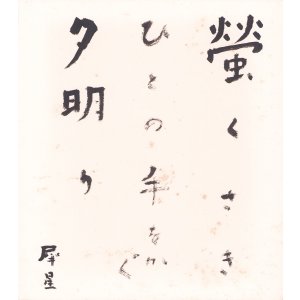 螢くさき
ひとの手をかぐ
夕明り
犀星